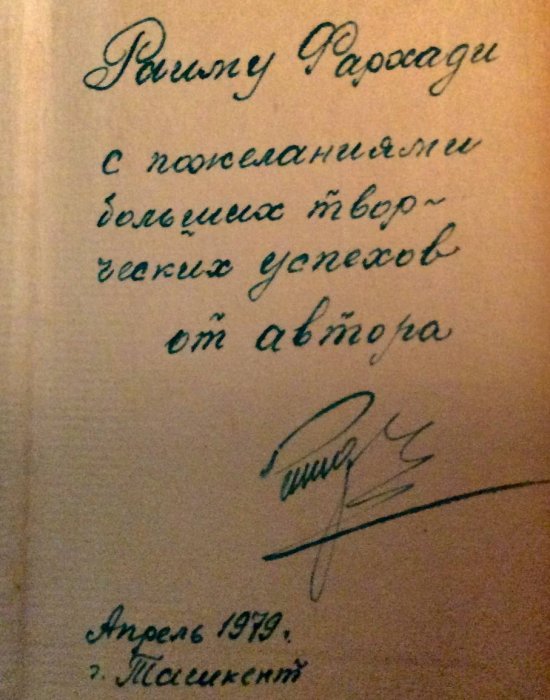 Раиму Фархади
с пожеланиями
больших твор~
ческих успехов
от автора
Апрель 1979.
г. Ташкент